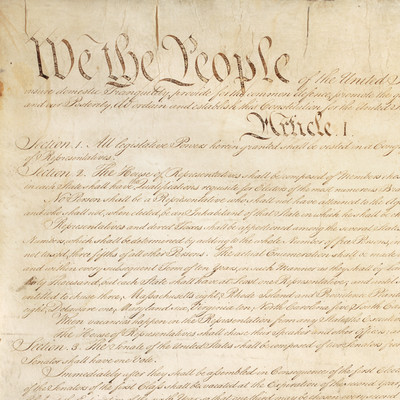 We the People of the United S
insure domestic Tranquility, provide for the common defence, promote the ge
and our Posterity, do ordain and establish this Constitution for the United S
Article. I.
Section. 1. All legislative Powers herein granted shall be vested in a Cong
of Representatives.
Section. 2. The House of Representatives shall be composed of Members chos
in each State shall have Qualifications requisite for Electors of the most numerous Bran
No Person shall be a Representative who shall not have attained to the Ag
and who shall not, when elected, be an Inhabitant of that State in which he shall be cho
Representatives and direct Taxes shall be apportioned among the several State
Numbers, which shall be determined by adding to the whole Number of free Persons, in
not taxed, three fifths of all other Persons. The actual Enumeration shall be made
and within every subsequent Term of ten Years, in such Manner as they shall by Law
thirty Thousand, but each State shall have at Least one Representative; and until
entitled to chuse three, Massachusetts eight, Rhode Island and Providence Plant
eight, Delaware one, Maryland six, Virginia ten, North Carolina five, South C
When vacancies happen in the Representation from any State, the Executive
The House of Representatives shall chuse their Speaker and other Officers;
Section. 3. The Senate of the United States shall be composed of two Senators from
Senator shall have one Vote.
Immediately after they shall be assembled in Consequence of the first Elec
of the Senators of the first Class shall be vacated at the Expiration of the second Year